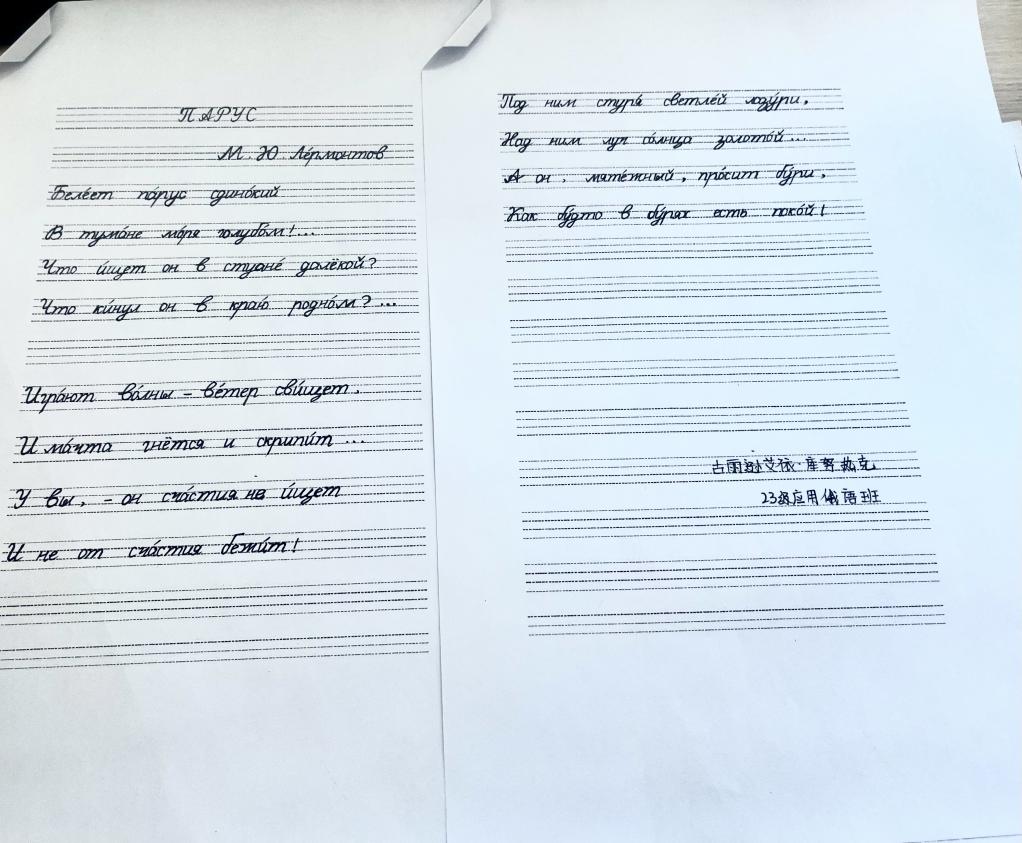 ПАРУС
М. Ю. Ле́рмонтов
Беле́ет па́рус одино́кий
В тума́не мо́ря голубо́м!...
Что и́щет он в стране́ далёкой?
Что ки́нул он в краю́ родно́м?...
Игра́ют во́лны – ве́тер сви́щет,
И ма́чта гнётся и скрипи́т...
У вы, – он сча́стия не и́щет
И не от сча́стия бежи́т!
Под ним струя́ светле́й лазу́ри,
Над ним луч со́лнца золото́й...
А он, мяте́жный, про́сит бу́ри,
Как бу́дто в бу́рях есть поко́й!
古丽 艾依·库努 克
23级应用俄语班